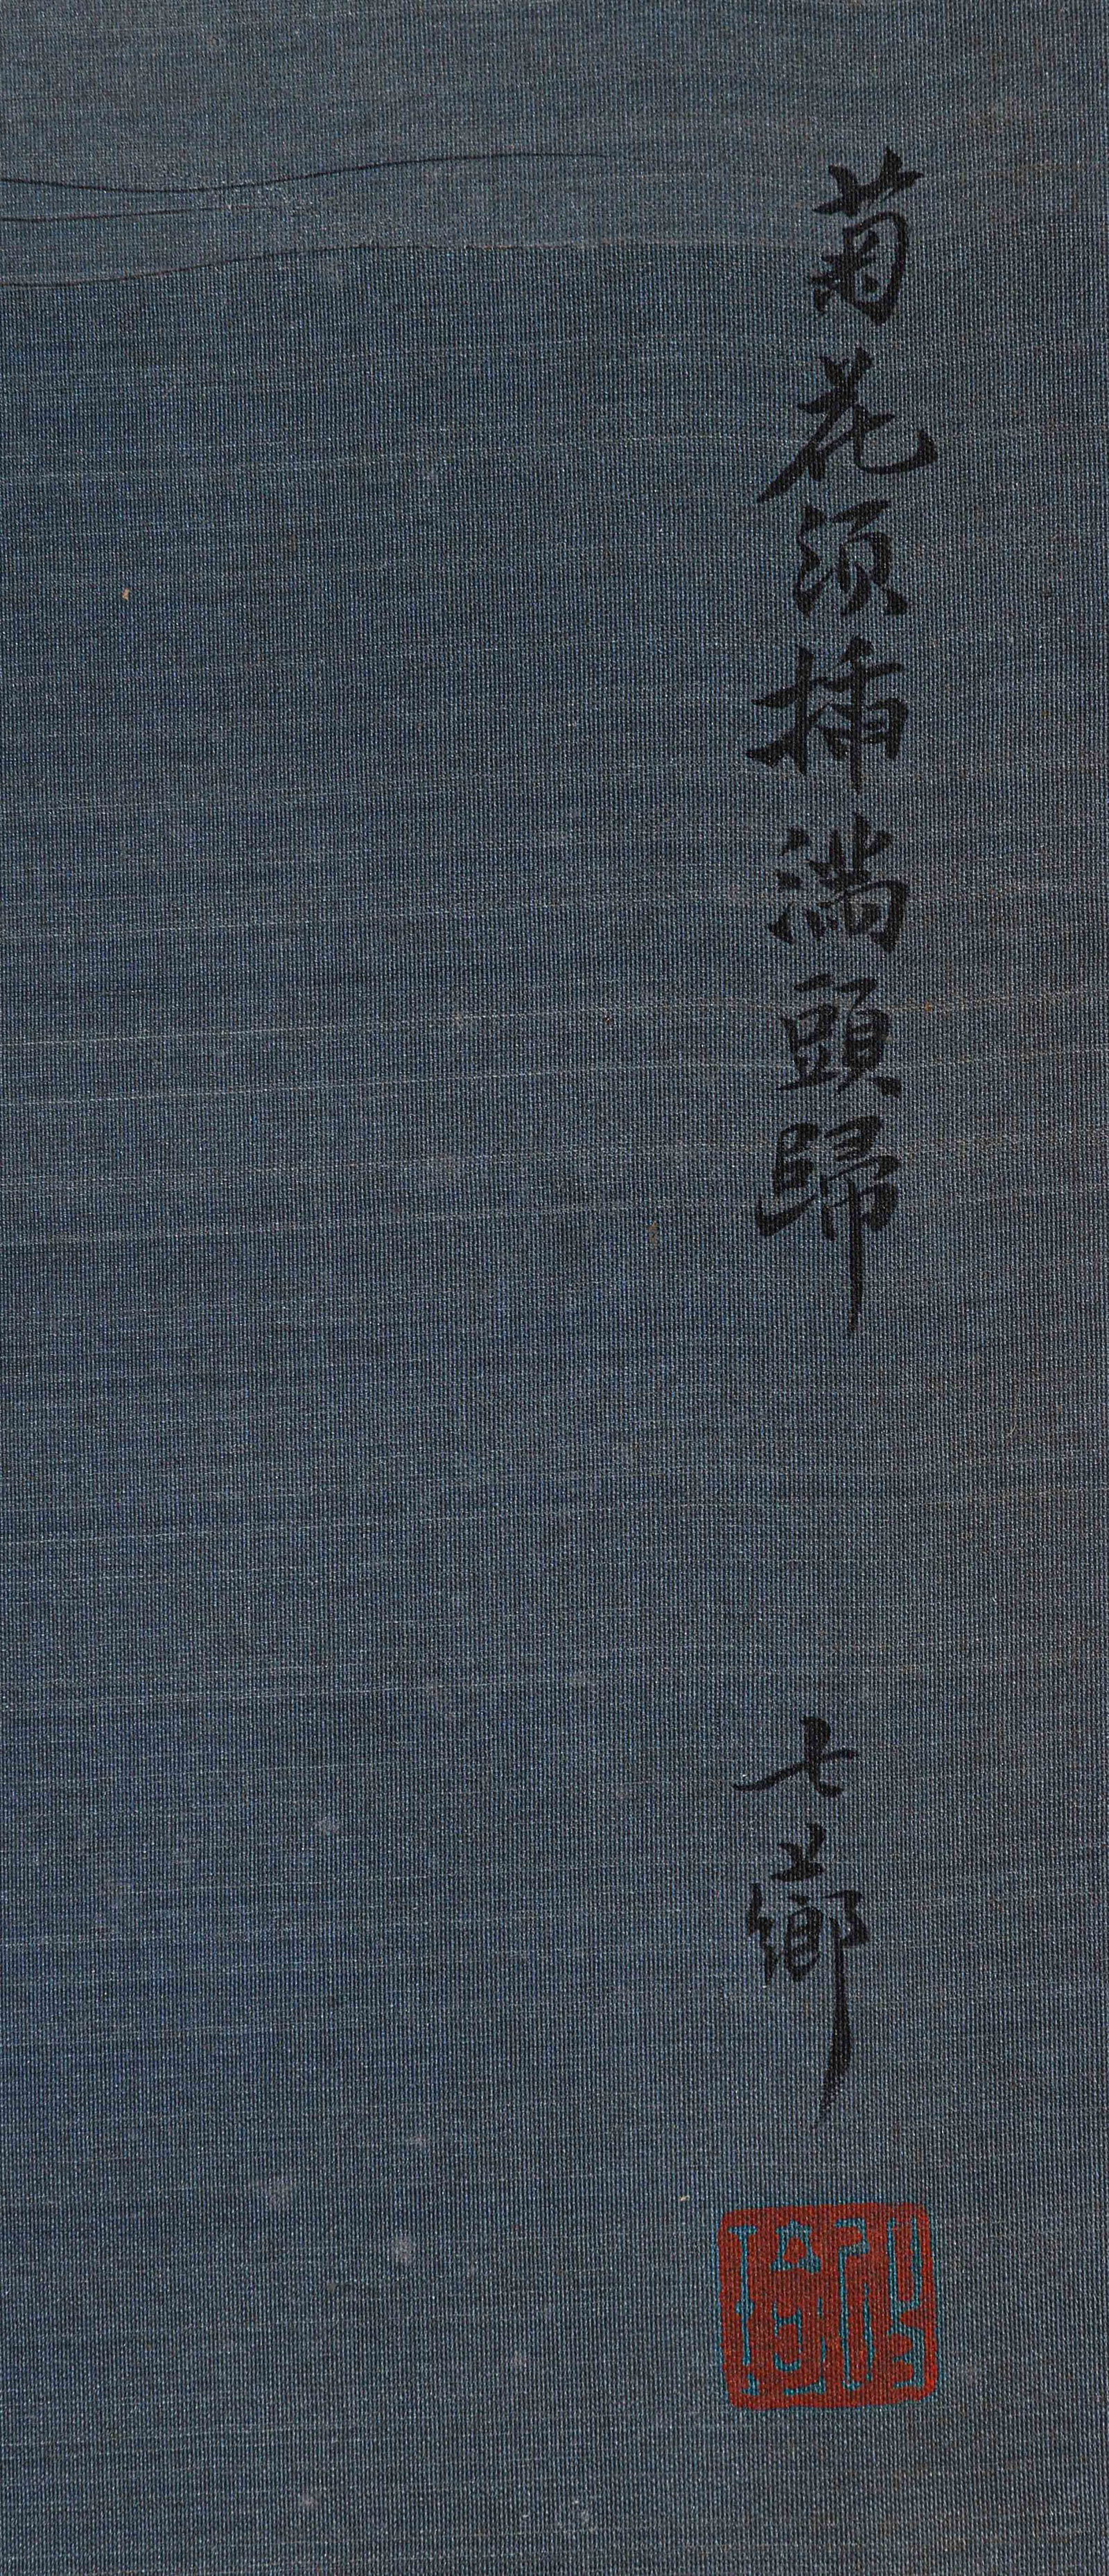 菊花須插滿頭歸
七薌